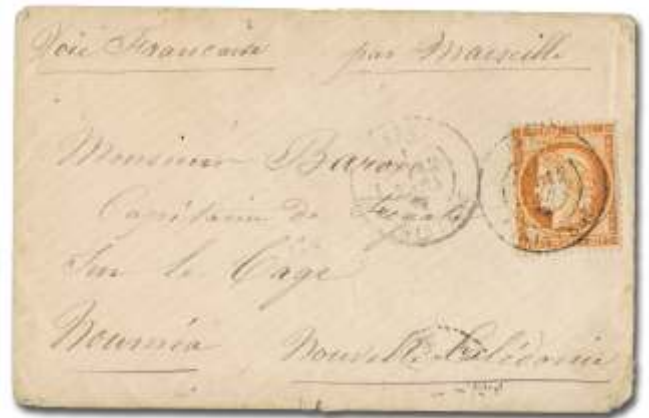 Voie Française par Marseille
Monsieur Baroin
Capitaine de Frégate
Sur le Cage
Nouméa Nouvelle Calédonie